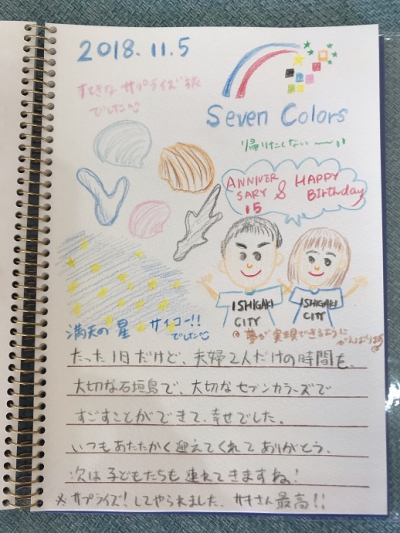 2018.11.5
すてきな サプライズ旅
でした
Seven Colors
帰りたくない〜!!
ANNIVER
SARY & HAPPY
15 Birthday
ISHIGAKI
CITY
ISHIGAKI
CITY
満天の星 サイコー!!
でした
@夢が実現できるように
がんばります
たった1日だけど、夫婦2人だけの時間を、
大切な石垣島で、大切なセブンカラーズで
すごすことができて、幸せでした。
いつもあたたかく迎えてくれてありがとう。
次は子どもたちも連れてきますね!
※サプライズ!してやられました。サキさん最高!!